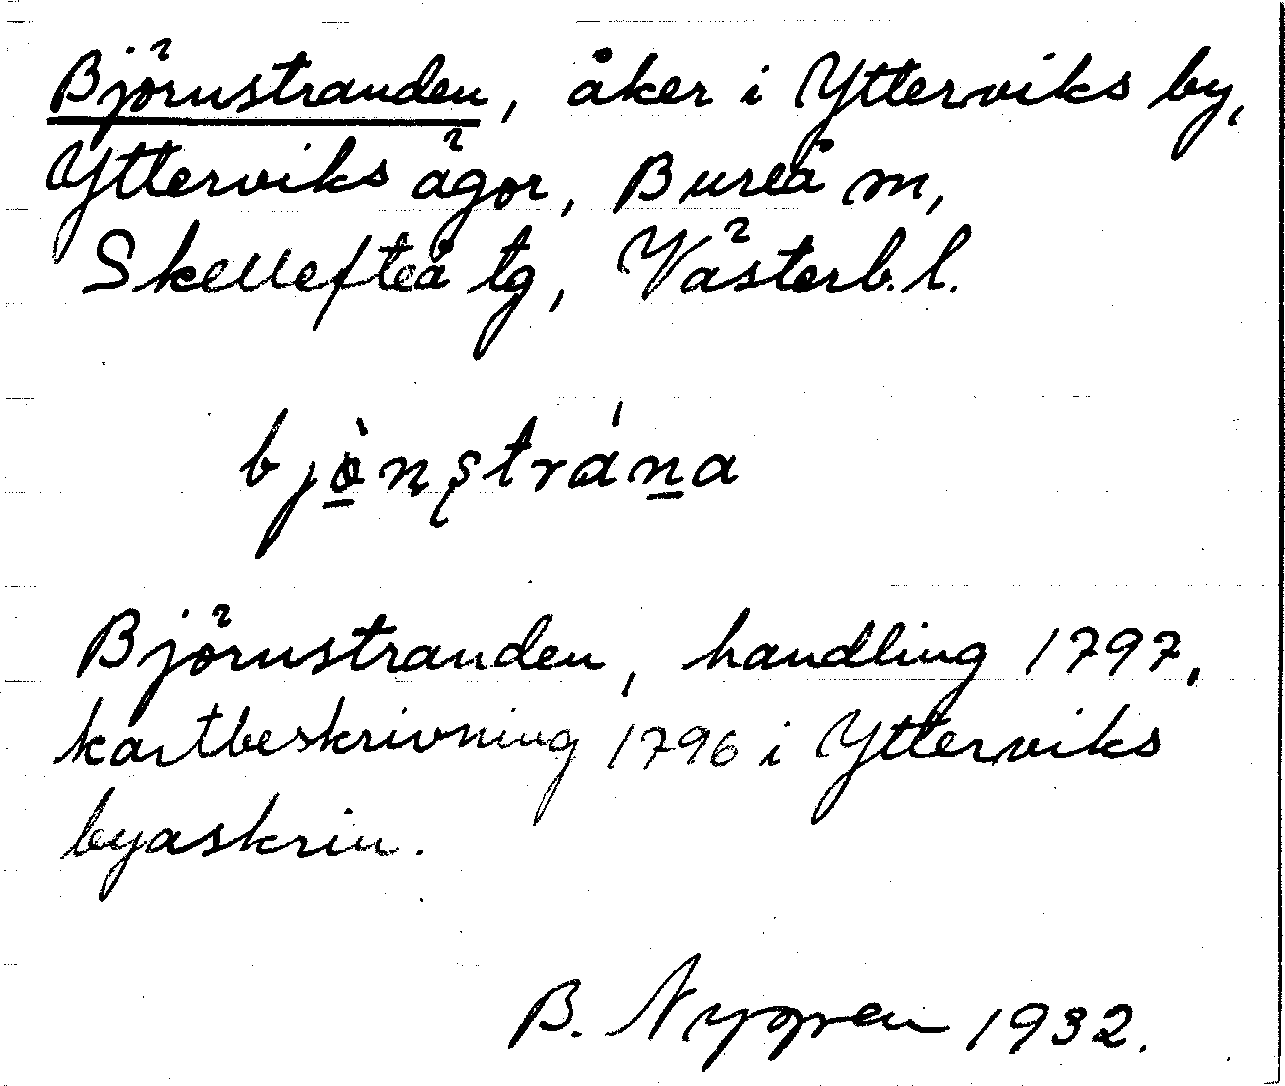 Björnstranden, åker i Ytterviks by,
Ytterviks ägor, Bureå m,
Skellefteå tg, Västerb. l.
bjò̱ṇṣtráṉa
Björnstranden, handling 1797,
kartbeskrivning 1796 i Ytterviks
byaskrin.
B. Nygren 1932.